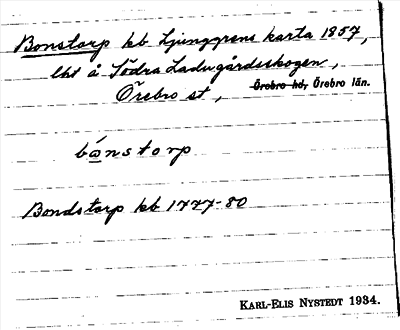 Bonstorp kb Ljunggrens karta 1857,
lht å Södra Ladugårdsskogen,
Örebro st, Örebro hd, Örebro län.
bǻnstorp
Bondstorp kb 1777-80
KARL-ELIS NYSTEDT 1934.